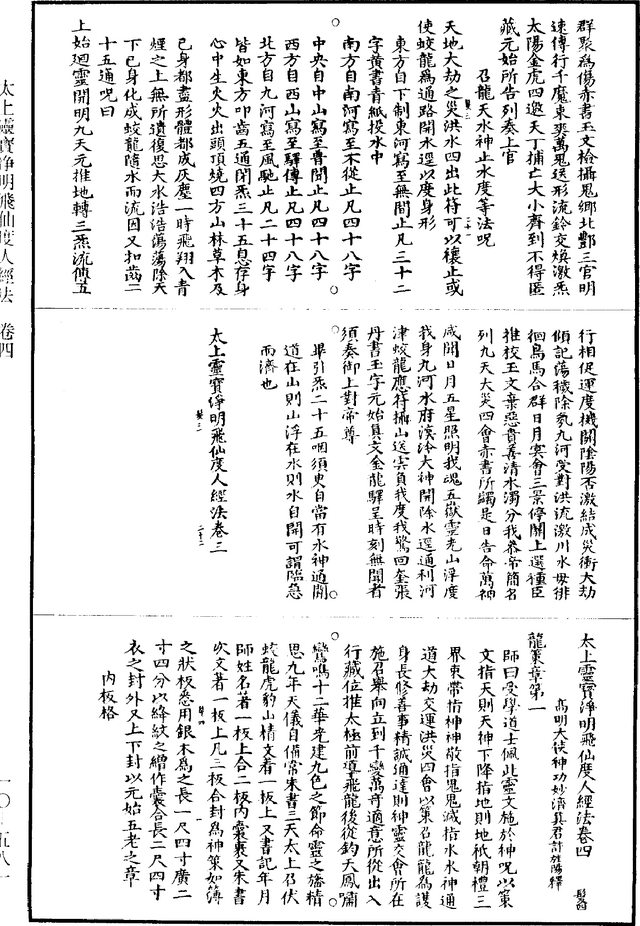 群聚爲傷赤書玉文檢攝鬼鄉北酆三官明
速傳行千魔束爽萬鬼送形流鈴交煥激炁
太陽金虎四邀天丁捕亡大小齊到不得匿
藏元始所告列奏上官
召龍天水神止水度等法呪
天地大劫之災洪水四出此符可以穰止或
使蛟龍爲通路開水逕以度身形
東方自下制東河寫至無間止凡三十二
字黃書青紙投水中
南方自南河寫至不從止凡四十八字
中央自中山寫至普聞止凡四十八字
西方自西山寫至驛傳止凡四十八字
北方自九河寫至風馳止凡二十四字
皆如東方叩齒五通閉炁三十五息存身
心中生火火出頭頂燒四方山林草木及
己身都盡形體都成灰塵一時飛翔入青
煙之上無所遺復思大水浩浩蕩蕩際天
下已身化成蛟龍隨水而流因又扣齒二
十五通呪曰
上始迴靈開明九天元推地轉三炁流傳五
行相促運度機關陰陽否激結成災衝大劫
傾訖蕩穢除氛九河受對洪流激川水母徘
徊鳥馬合群日月冥會三景停關上選種臣
推校玉文棄惡貴善清水濁分我恭帝簡名
列九天大災四會赤書所蠲是日告命萬神
咸聞日月五星照明我魂五嶽靈光山浮度
我身九河水府溟泠大神開除水逕通利河
津蛟龍應符攝山送雲負我度我驚回奎張
丹書玉字元始真文金龍驛呈時刻無聞者
須奏御上對帝尊
畢引炁二十五咽須臾自當有水神通開
道在山則山浮在水則水自開可謂臨急
而濟也
太上靈寶淨明飛仙度人經法卷三
太上靈寶淨明飛仙度人經法卷四
高明大使神功妙濟真君許旌陽釋
龍策章第一
師曰受學道士佩此靈文施於神呪以策
文指天則天神下降指地則地祇朝禮三
界束帶指神神敬指鬼鬼滅指水水神通
道大劫交運洪災四會以策召龍龍爲護
身長修善事精誠通達則神靈交會所在
施召舉向立到千變萬奇適意所從出入
行藏位推太極前導飛龍後從鈞天鳳嘯
鸞鳴十二華光建九色之節命靈之旛精
思九年天儀自備常朱書三天太上召伏
蛟龍虎豹山精文著一板上又書記年月
師姓名著一板上合二板內囊裹又朱書
吹文著一板上凡三板合封爲神策如簿
之狀板悉用銀木爲之長一尺四寸廣二
寸四分以絳紋之繒作囊合長二尺四寸
衣之封外又上下封以元始五老之章
內板格
太上靈寶淨明飛仙度人經法　卷四
一〇—五八一